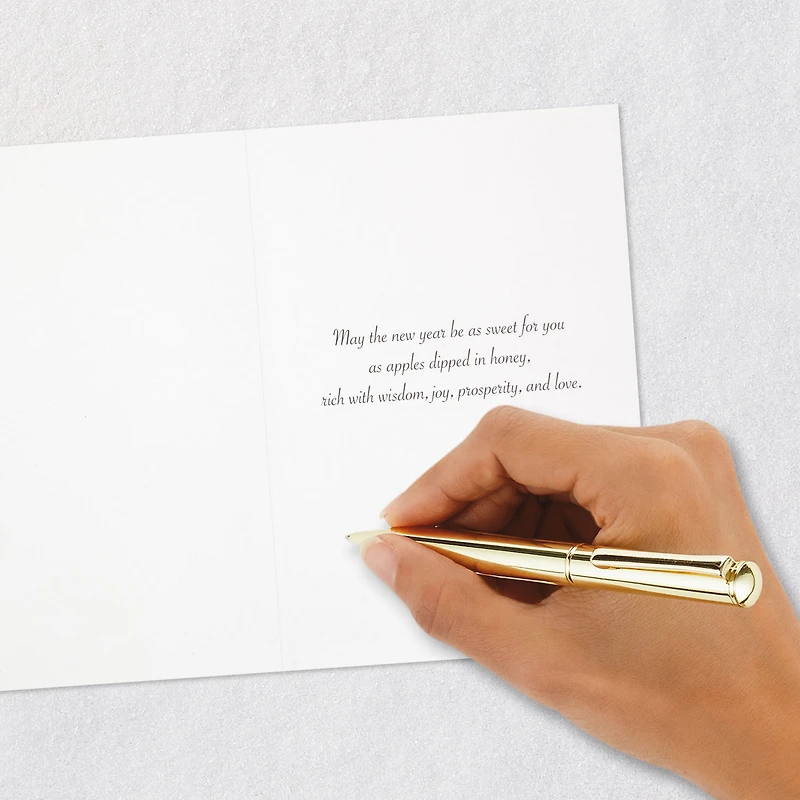 May the new year be as sweet for you
as apples dipped in honey,
rich with wisdom, joy, prosperity, and love.